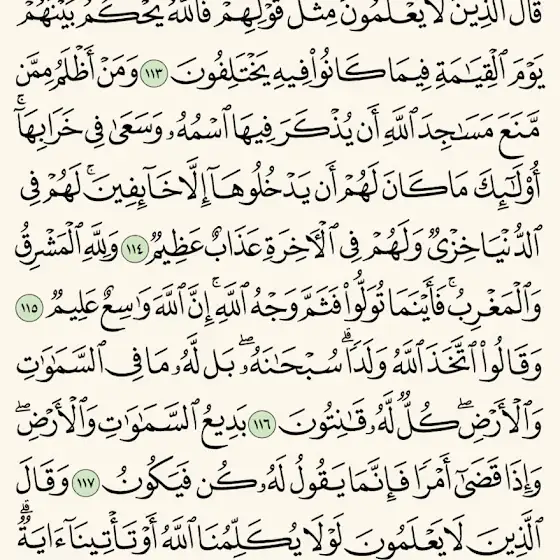 قَالَ ٱلَّذِينَ لَا يَعْلَمُونَ مِثْلَ قَوْلِهِمْ فَٱللَّهُ يَحْكُمُ بَيْنَهُمْ
يَوْمَ ٱلْقِيَٰمَةِ فِيمَا كَانُوا۟ فِيهِ يَخْتَلِفُونَ ١١٣ وَمَنْ أَظْلَمُ مِمَّن
مَّنَعَ مَسَٰجِدَ ٱللَّهِ أَن يُذْكَرَ فِيهَا ٱسْمُهُۥ وَسَعَىٰ فِى خَرَابِهَآ ۚ
أُو۟لَٰٓئِكَ مَا كَانَ لَهُمْ أَن يَدْخُلُوهَآ إِلَّا خَآئِفِينَ ۚ لَهُمْ فِى
ٱلدُّنْيَا خِزْىٌ وَلَهُمْ فِى ٱلْءَاخِرَةِ عَذَابٌ عَظِيمٌ ١١٤ وَلِلَّهِ ٱلْمَشْرِقُ
وَٱلْمَغْرِبُ ۚ فَأَيْنَمَا تُوَلُّوا۟ فَثَمَّ وَجْهُ ٱللَّهِ ۚ إِنَّ ٱللَّهَ وَٰسِعٌ عَلِيمٌ ١١٥
وَقَالُوا۟ ٱتَّخَذَ ٱللَّهُ وَلَدًا ۗ سُبْحَٰنَهُۥ ۖ بَل لَّهُۥ مَا فِى ٱلسَّمَٰوَٰتِ
وَٱلْأَرْضِ ۖ كُلٌّ لَّهُۥ قَٰنِتُونَ ١١٦ بَدِيعُ ٱلسَّمَٰوَٰتِ وَٱلْأَرْضِ ۖ
وَإِذَا قَضَىٰٓ أَمْرًا فَإِنَّمَا يَقُولُ لَهُۥ كُن فَيَكُونُ ١١٧ وَقَالَ
ٱلَّذِينَ لَا يَعْلَمُونَ لَوْلَا يُكَلِّمُنَا ٱللَّهُ أَوْ تَأْتِينَآ ءَايَةٌ ۗ